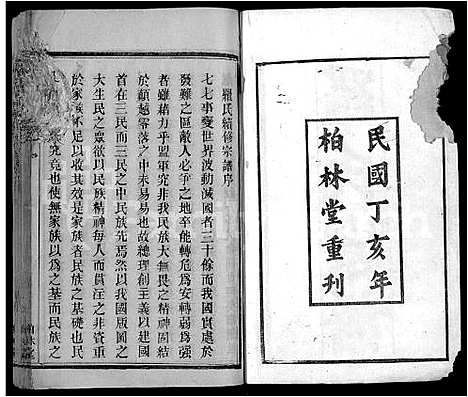 民國丁亥年
柏林堂重刊
羅氏續修宗譜序
七七事變世界波動滅國者二十餘而我國實處於
發難之區敵人必爭之地卒能轉危為安轉弱為強
者雖藉力乎盟軍究非我民族大無畏之精神團結
於顛越零落之中未易易也故總理創主義以建國
首在三民而三民之中民族先焉然以我國版圖之
大生民之靈欲以民族精神每人而貫注之非資重
於家族不足以收其效蓋家族者民族之基礎也民
究竟也使無家族以為之基而民族之
柏林堂